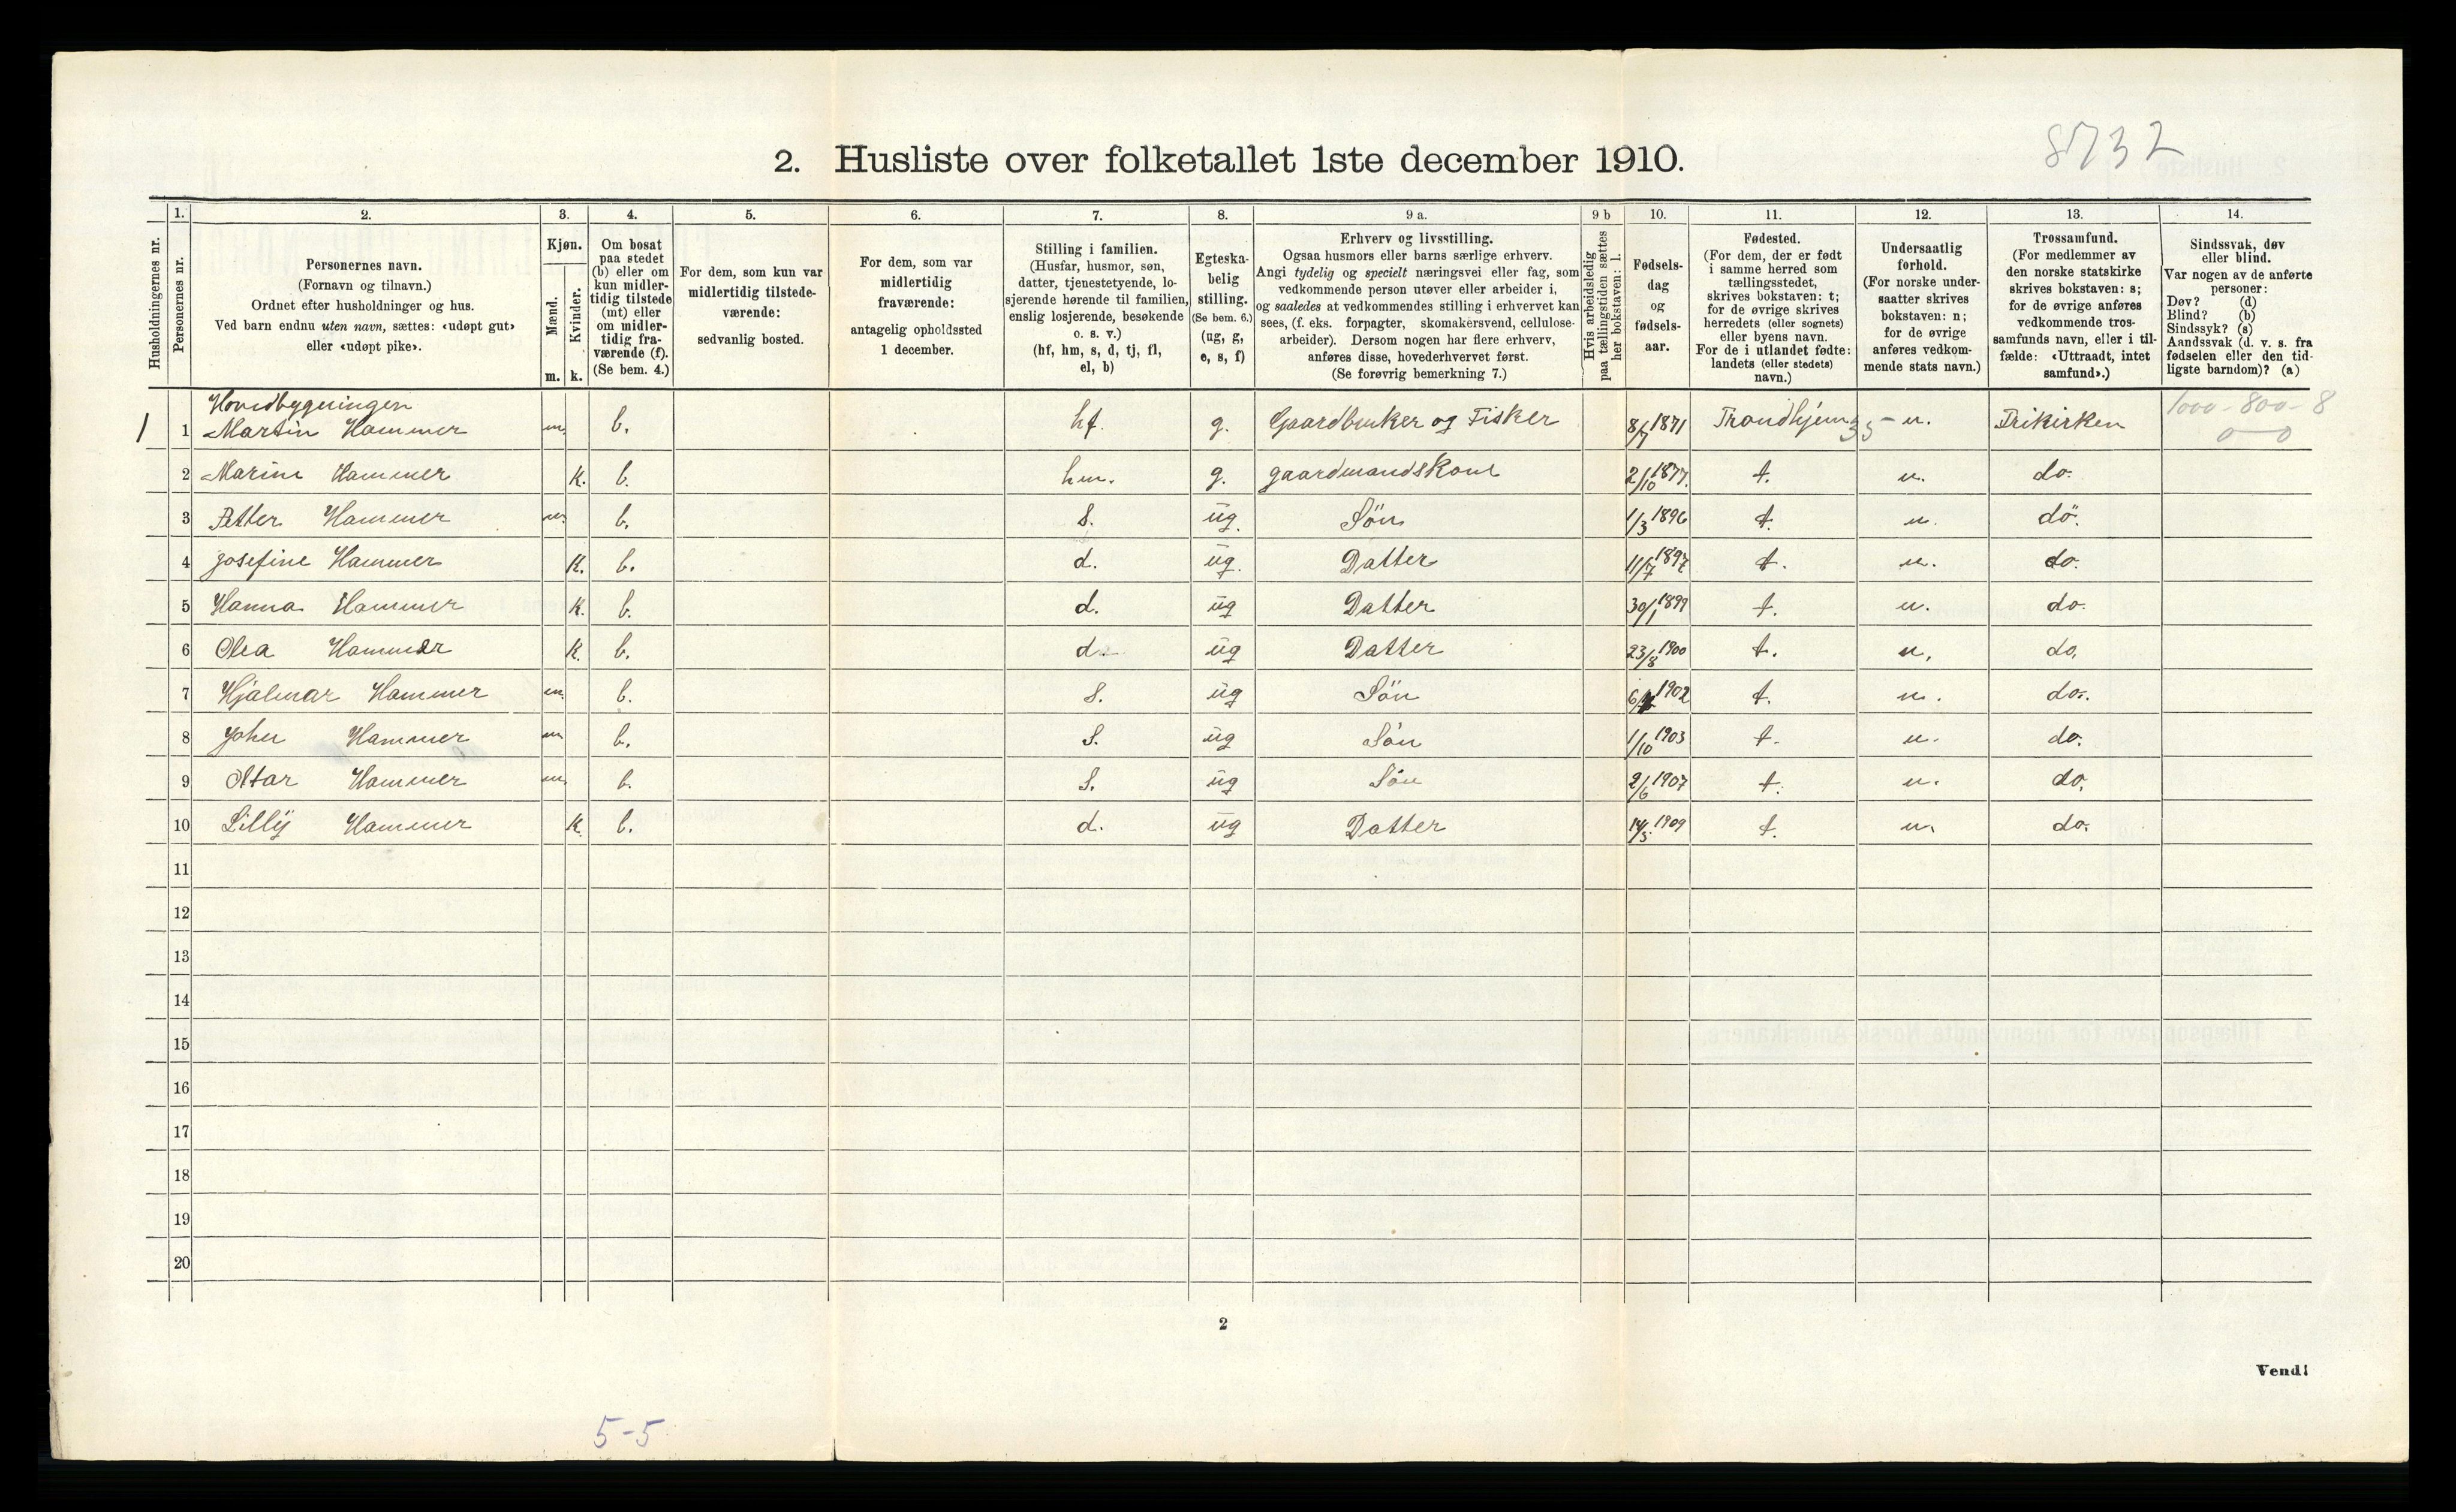 8732
2. Husliste over folketallet 1ste december 1910.
Husholdningernes nr.
1.
Personernes nr.
2.
Personernes navn.
(Fornavn og tilnavn.)
Ordnet efter husholdninger og hus.
Ved barn endnu uten navn, sættes: «udøpt gut»
eller «udøpt pike».
3.
Kjøn.
Mænd.
Kvinder.
m. k.
4.
Om bosat
paa stedet
(b) eller om
kun midler-
tidig tilstede
(mt) eller
om midler-
tidig fra-
værende (f).
(Se bem. 4.)
5.
For dem, som kun var
midlertidig tilstede-
værende:
sedvanlig bosted.
6.
For dem, som var
midlertidig
fraværende:
antagelig opholdssted
1 december.
7.
Stilling i familien.
(Husfar, husmor, søn,
datter, tjenestetyende, lo-
sjerende hørende til familien,
enslig losjerende, besøkende
o. s. v.)
(hf, hm, s, d, tj, fl,
el, b)
8.
Egteska-
belig
stilling.
(Se bem. 6.)
(ug, g,
e, s, f)
9 a.
Erhverv og livsstilling.
Ogsaa husmors eller barns særlige erhverv.
Angi tydelig og specielt næringsvei eller fag, som
vedkommende person utøver eller arbeider i,
og saaledes at vedkommendes stilling i erhvervet kan
sees, (f. eks. forpagter, skomakersvend, cellulose-
arbeider). Dersom nogen har flere erhverv,
anføres disse, hovederhvervet først.
(Se forøvrig bemerkning 7.)
9 b
Hvis arbeidsledig
paa tællingstiden sættes
her bokstaven: l.
10.
Fødsels-
dag
og
fødsels-
aar.
11.
Fødested.
(For dem, der er født
i samme herred som
tællingsstedet,
skrives bokstaven: t;
for de øvrige skrives
herredets (eller sognets)
eller byens navn.
For de i utlandet fødte:
landets (eller stedets)
navn.)
12.
Undersaatlig
forhold.
(For norske under-
saatter skrives
bokstaven: n;
for de øvrige
anføres vedkom-
mende stats navn.)
13.
Trossamfund.
(For medlemmer av
den norske statskirke
skrives bokstaven: s;
for de øvrige anføres
vedkommende tros-
samfunds navn, eller i til-
fælde: «Uttraadt, intet
samfund».)
14.
Sindssvak, døv
eller blind.
Var nogen av de anførte
personer:
Døv? (d)
Blind? (b)
Sindssyk? (s)
Aandssvak (d. v. s. fra
fødselen eller den tid-
ligste barndom)? (a)
Hovedbygningen
1 1 Martin Hammer m. b. hf. g. Gaardbruker og Fisker 8/7 1871 Trondhjem 35 - n. Frikirken 1000-800-8
0-0
2 Marine Hammer k. b. hm. g. gaardmandskone 2/10 1877. t. n. do.
3 Petter Hammer m. b. s. ug. Søn 1/3 1896 t. n. do.
4 Josefine Hammer k. b. d. ug. Datter 11/7 1897 t. n. do.
5 Hanna Hammer k. b. d. ug Datter 30/1 1899 t. n. do.
6 Olea Hammer k. b. d. ug Datter 23/8 1900 t. n. do.
7 Hjalmar Hammer m. b. s. ug Søn 1902 t. n. do.
8 Johen Hammer m b. s. ug Søn 1/10 1903 t. n. do.
9 Otar Hammer m. b. s. ug Søn 2/6 1907 t. n. do.
10 Lilly Hammer k. b. d. ug Datter 14/5 1909 t. n. do.
11
12
13
14
15
16
17
18
19
20
2
Vend!
5-5